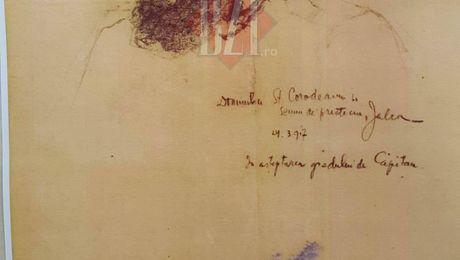 BZI.ro
Domnului St Corodeanu
Semn de prietenie, Jalea
24.3.917
In asteptarea gradului de Căpitan